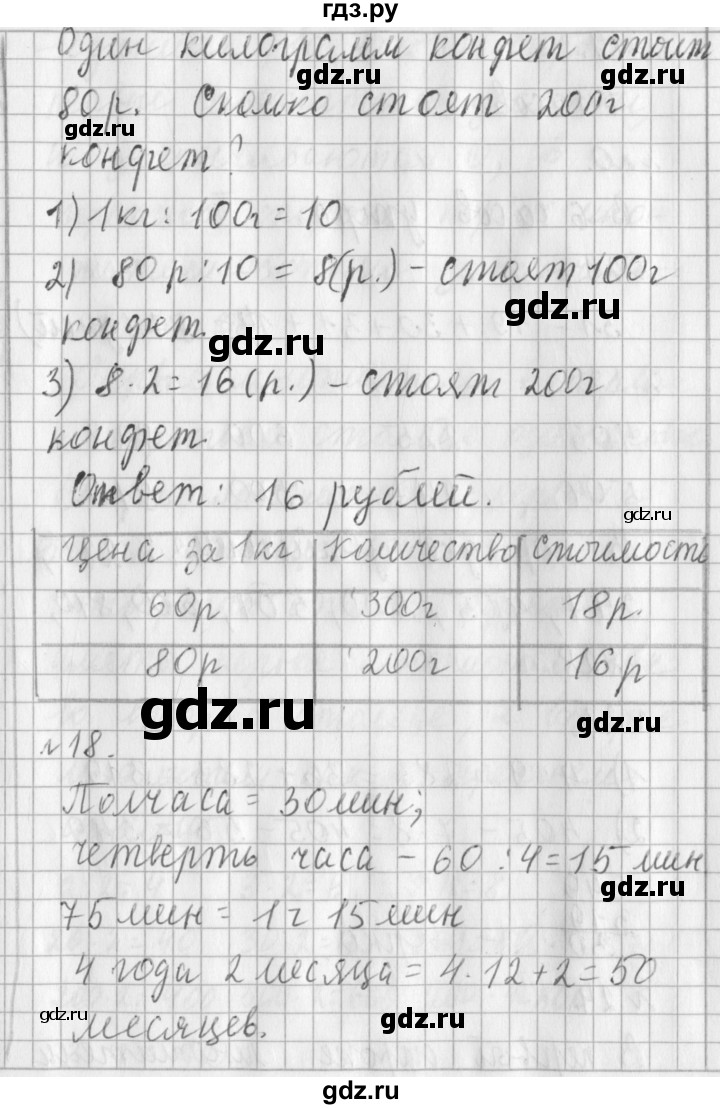 гдз.ру
Один килограмм конфет стоит
gdz.ru gdz.ru
80р. Сколько стоят 200г
gdz.ru
конфет?
1) 1кг : 100г = 10
2) 80р : 10 = 8(р.) - стоят 100г
gdz.ru
конфет.
gdz.ru
3) 8 · 2 = 16 (р.) - стоят 200г
конфет.
Ответ: 16 рублей.
gdz.ru
Цена за 1кг Количество Стоимость
60р 300г 18р.
80р 200г 16р
gdz.ru
gdz.ru
№18.
Полчаса = 30мин;
четверть часа - 60 : 4 = 15 мин
gdz.ru
75мин = 1ч 15мин
4 года 2 месяца = 4 · 12 + 2 = 50
gdz.ru gdz.ru
месяцев.
gdz.ru